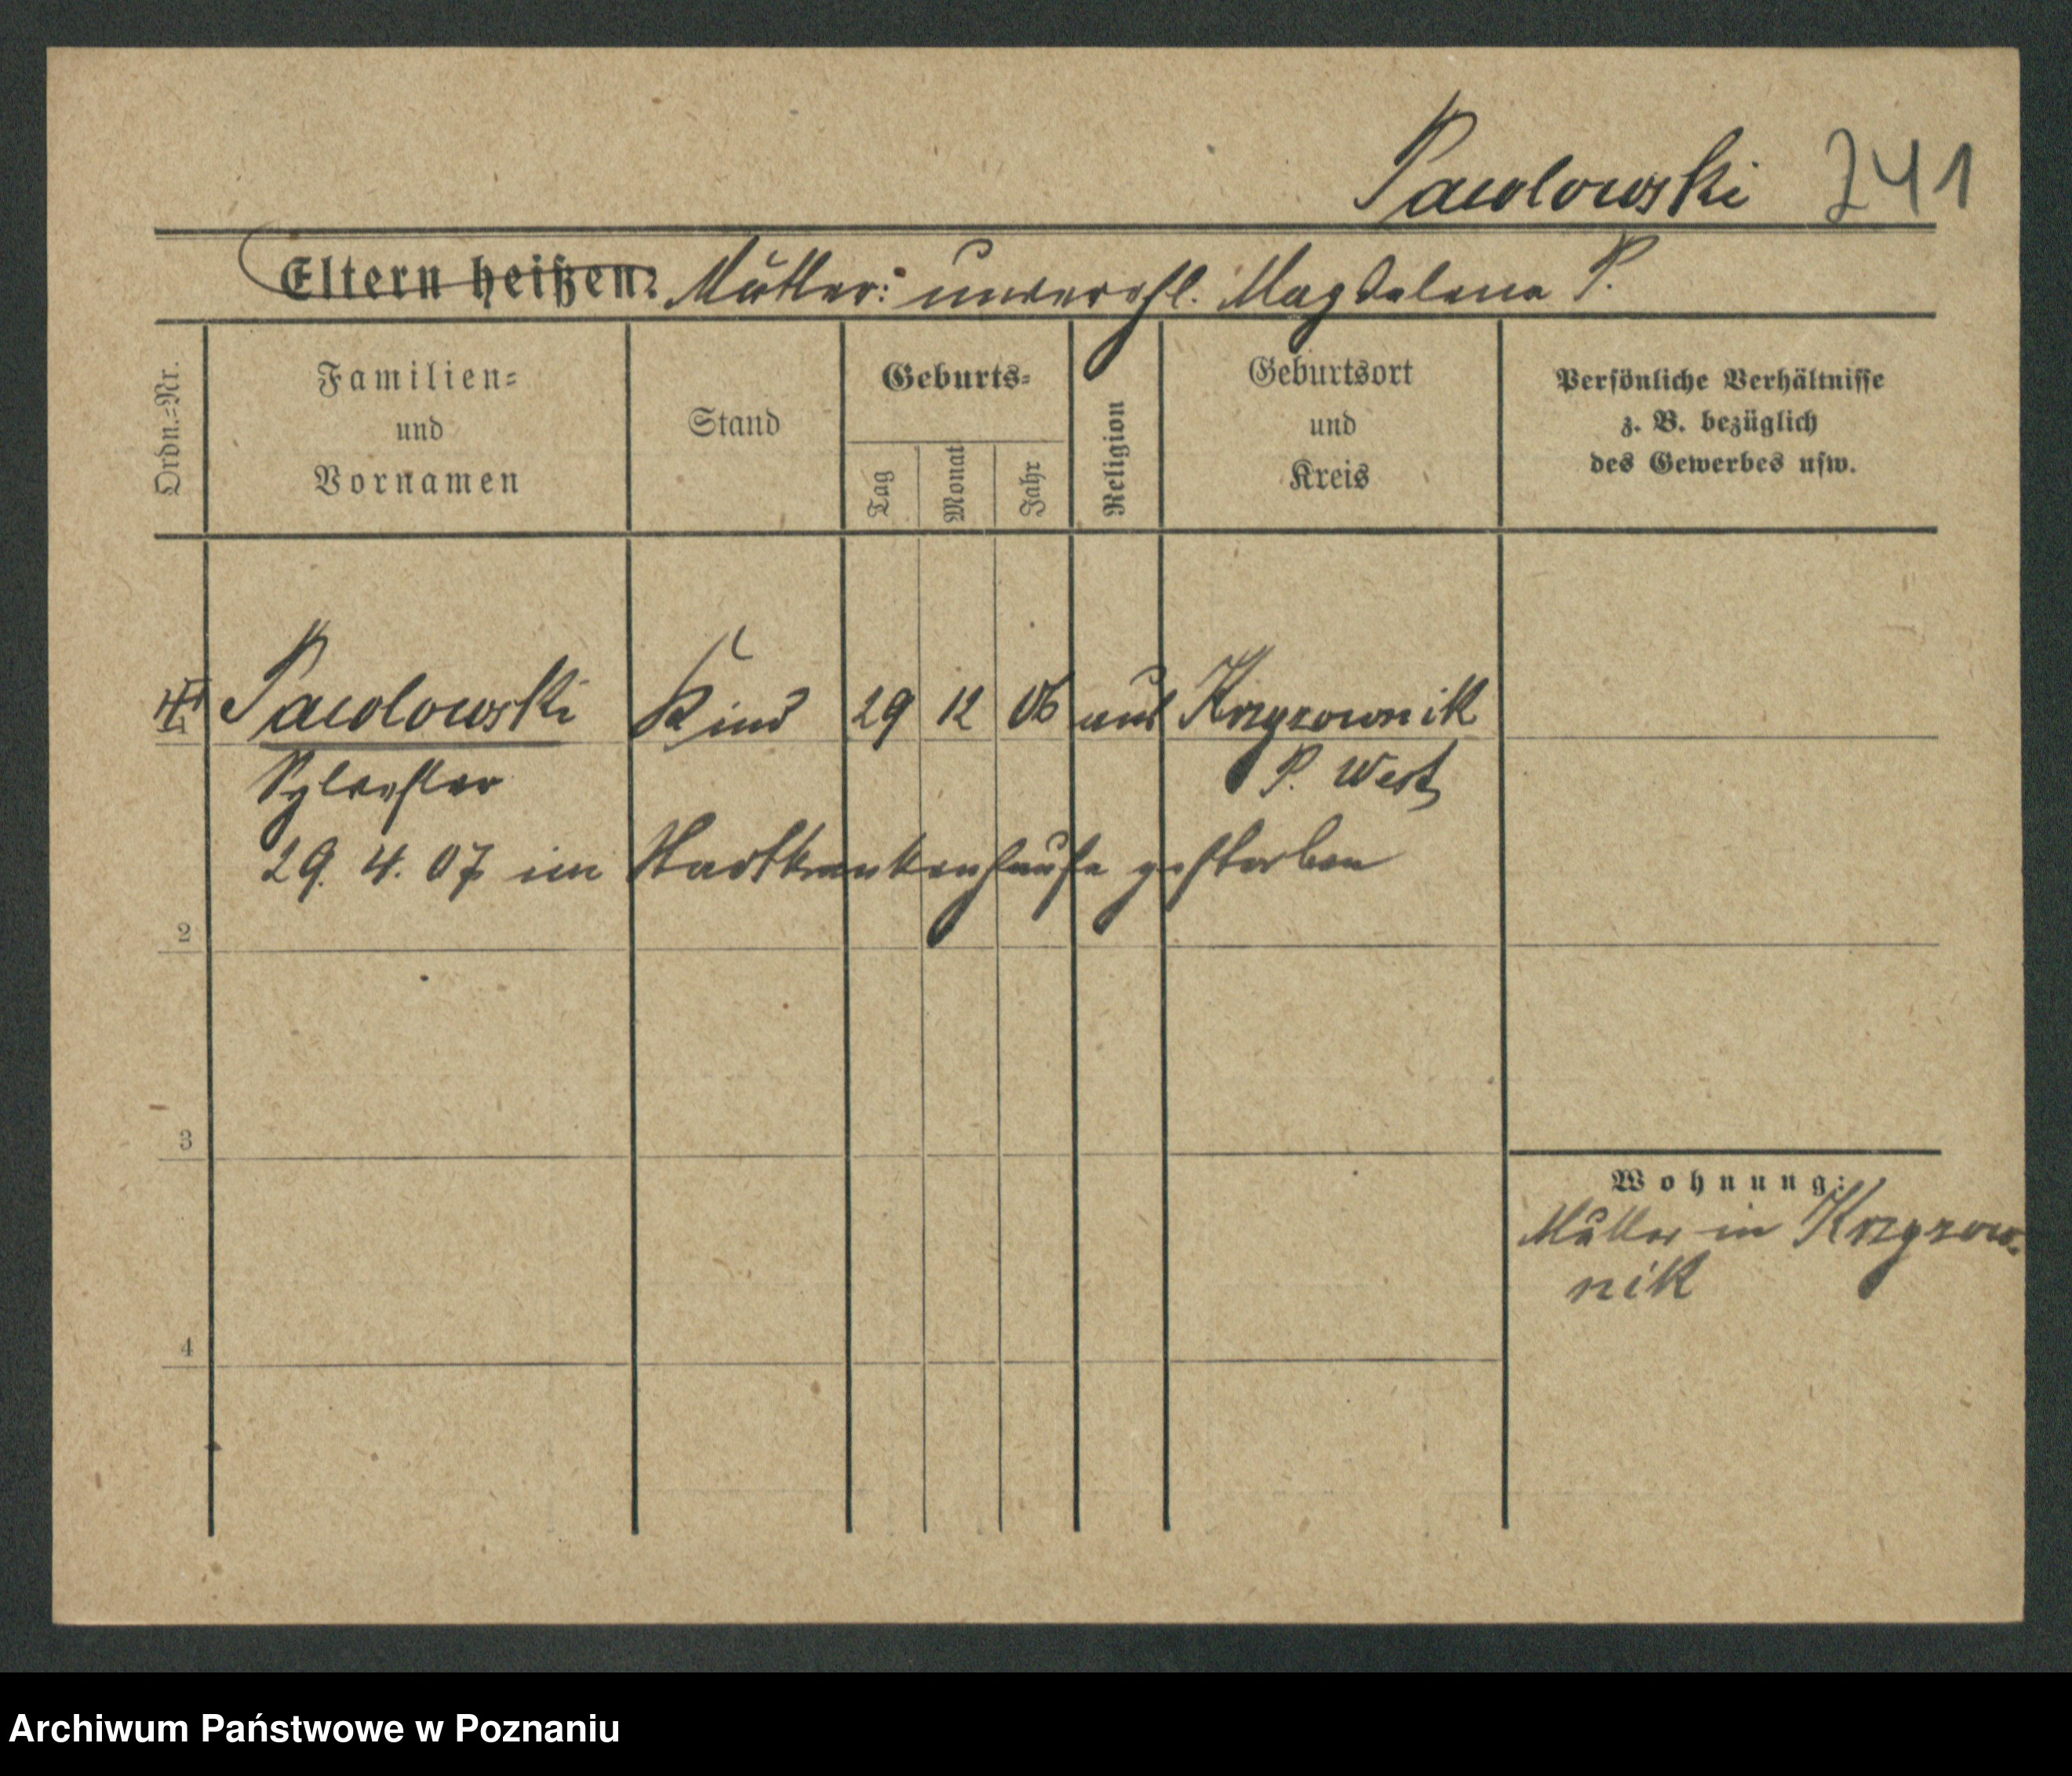 Pawlowski 241
Eltern heißen: Mutter: unverehl. Magdalena P.
Ordn.=Nr.
Familien=
und
Vornamen
Stand
Geburts=
Tag
Monat
Jahr
Religion
Geburtsort
und
Kreis
Persönliche Verhältnisse
z. B. bezüglich
des Gewerbes usw.
Pawlowski Kind 29 12 06 aus Krzyzownik
Sylvester P. West
29. 4. 07 im Stadtkrankenhause gestorben
2
3
Wohnung:
Mutter in Krzyzow-
nik
4
Archiwum Państwowe w Poznaniu